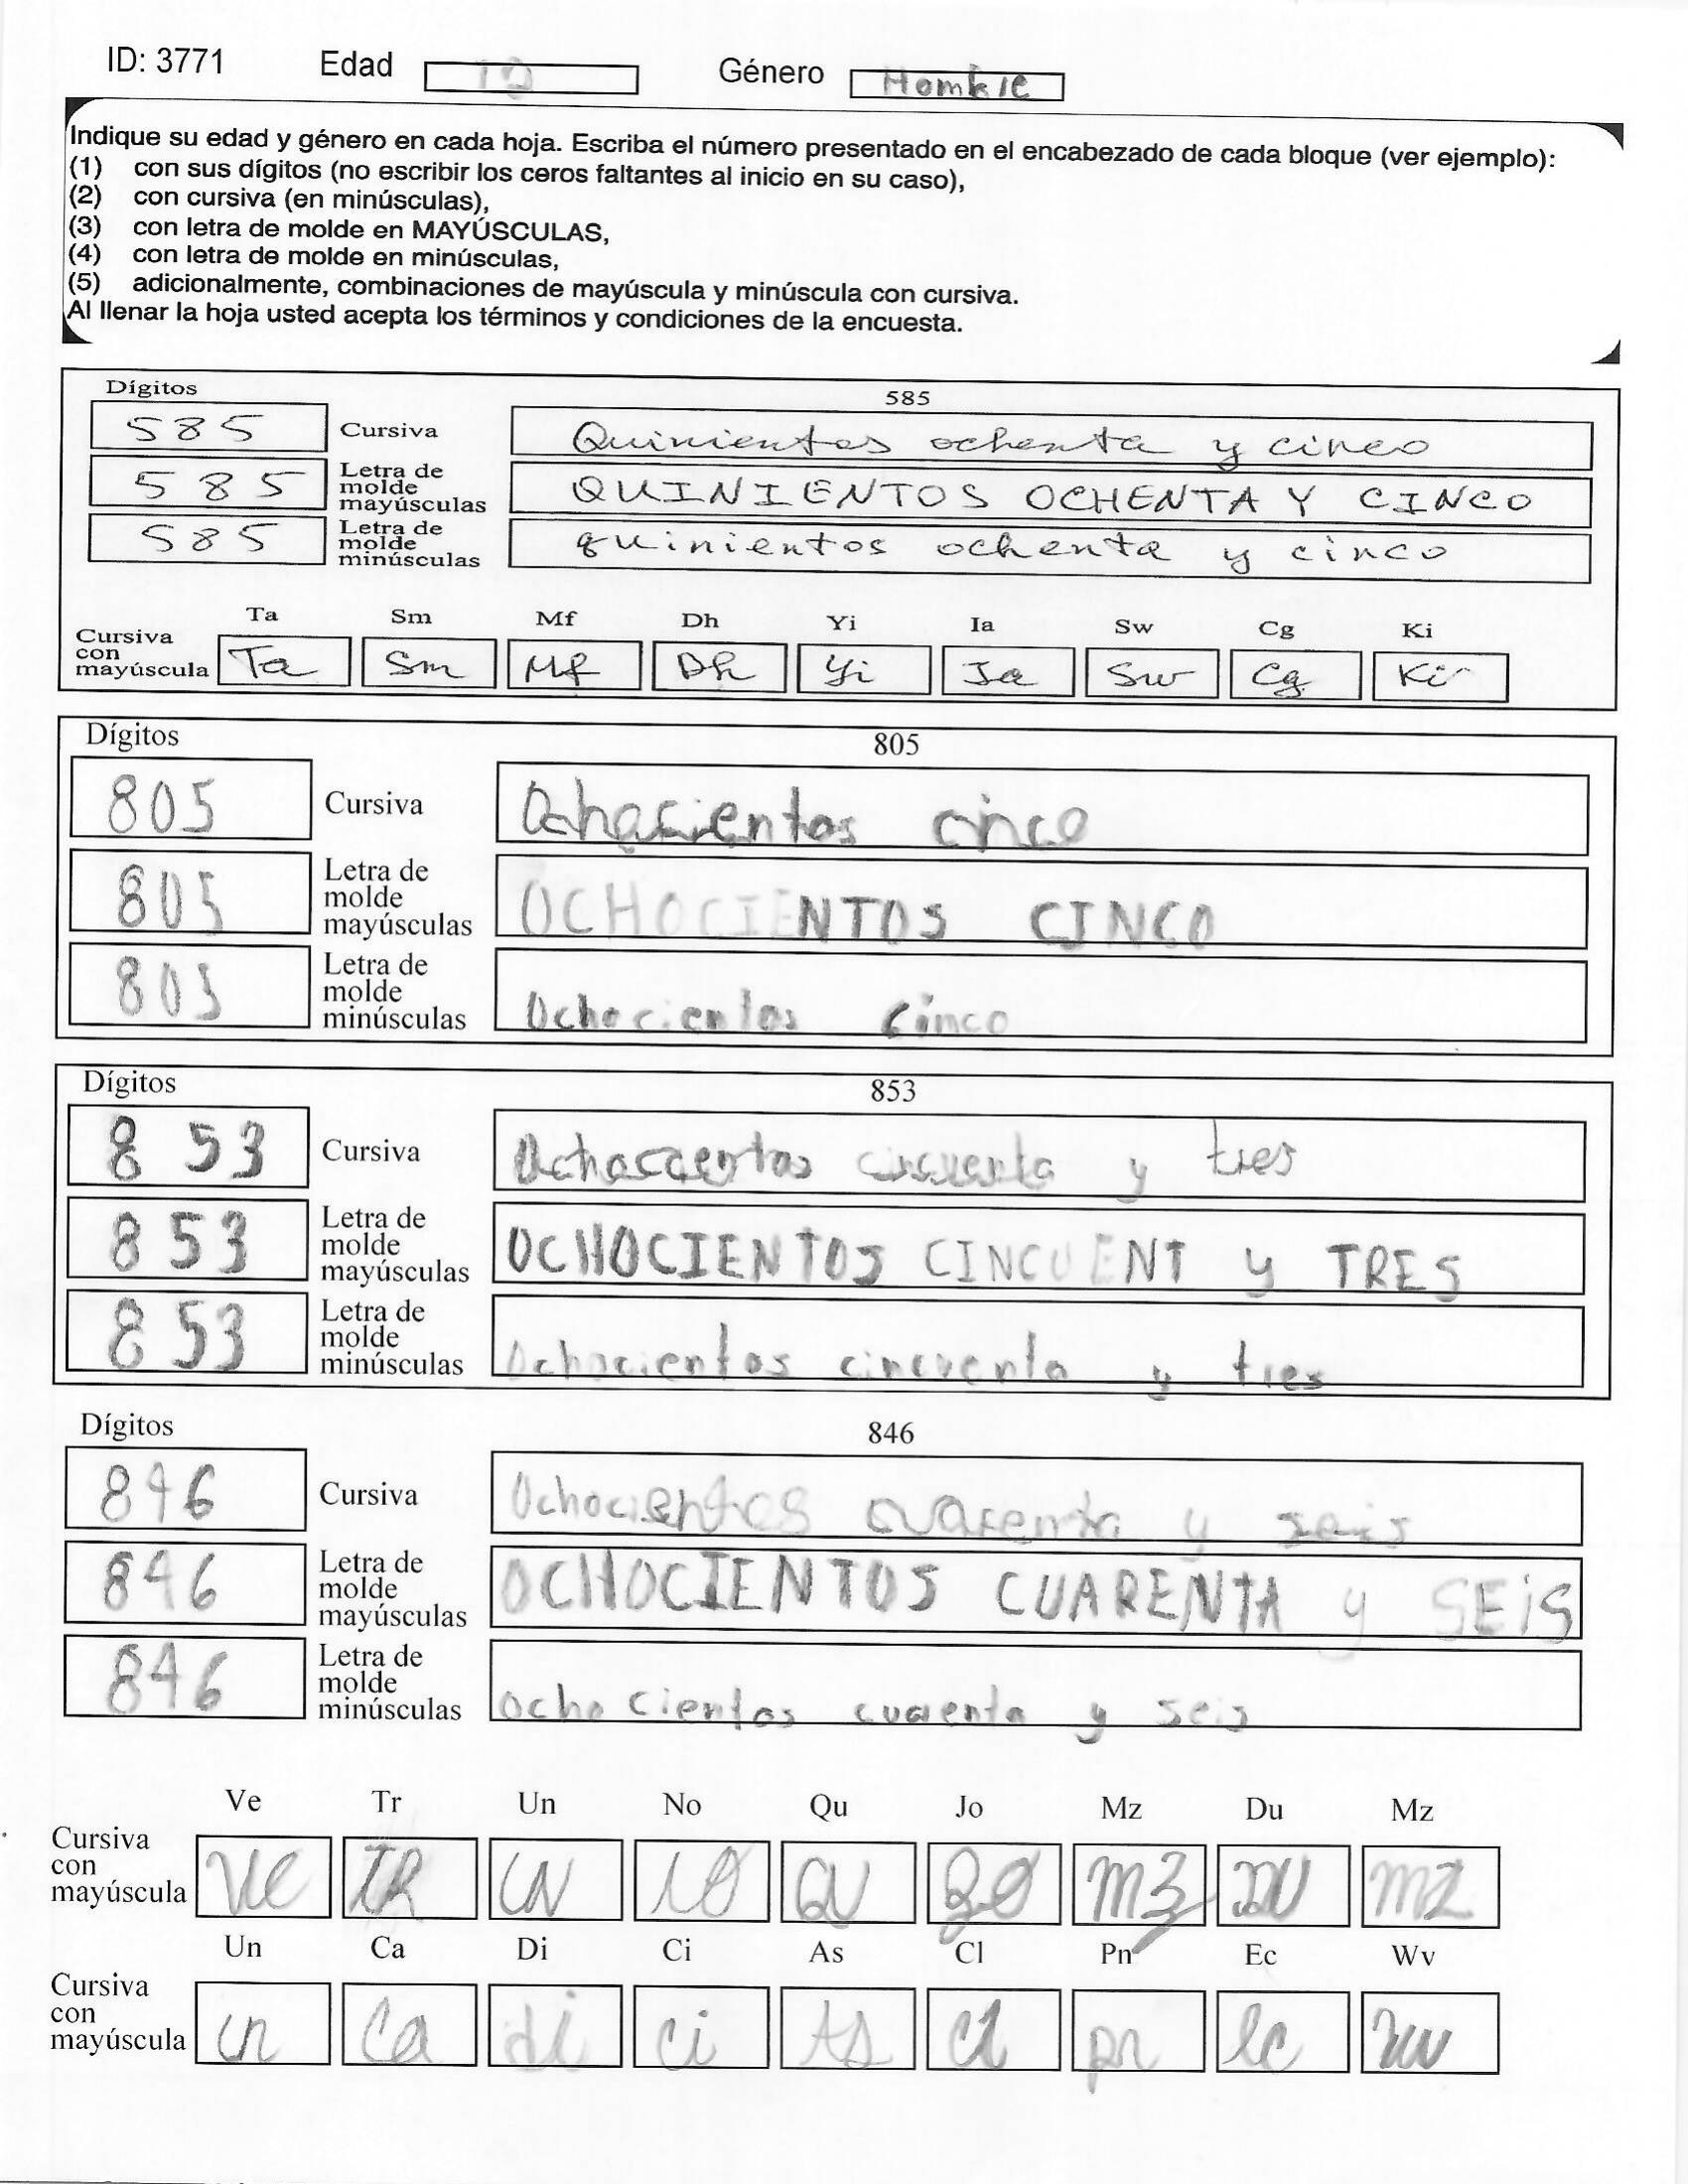 ID: 3771 Edad Género Hombre
Indique su edad y género en cada hoja. Escriba el número presentado en el encabezado de cada bloque (ver ejemplo):
(1) con sus dígitos (no escribir los ceros faltantes al inicio en su caso),
(2) con cursiva (en minúsculas),
(3) con letra de molde en MAYÚSCULAS,
(4) con letra de molde en minúsculas,
(5) adicionalmente, combinaciones de mayúscula y minúscula con cursiva.
Al llenar la hoja usted acepta los términos y condiciones de la encuesta.
Dígitos 585
585 Cursiva Quinientos ochenta y cinco
585 Letra de molde mayúsculas QUINIENTOS OCHENTA Y CINCO
585 Letra de molde minúsculas quinientos ochenta y cinco
Ta Sm Mf Dh Yi Ia Sw Cg Ki
Cursiva con mayúscula Ta Sm Mf Dh Yi Ia Sw Cg Ki
Dígitos 805
805 Cursiva Ochocientos cinco
805 Letra de molde mayúsculas OCHOCIENTOS CINCO
805 Letra de molde minúsculas Ochocientos cinco
Dígitos 853
853 Cursiva cincuenta y tres
853 Letra de molde mayúsculas OCHOCIENTOS CINCUENT y TRES
853 Letra de molde minúsculas Ochocientos cincuenta y tres
Dígitos 846
846 Cursiva Ochocientos cuarenta y seis
846 Letra de molde mayúsculas OCHOCIENTOS CUARENTA y SEiS
846 Letra de molde minúsculas Ocho cientos cuarenta y seis
Ve Tr Un No Qu Jo Mz Du Mz
Cursiva con mayúscula Ve TR UN NO QU Jo m3 DU mz
Un Ca Di Ci As Cl Pn Ec Wv
Cursiva con mayúscula un Ca di ci As cl pn ec wv